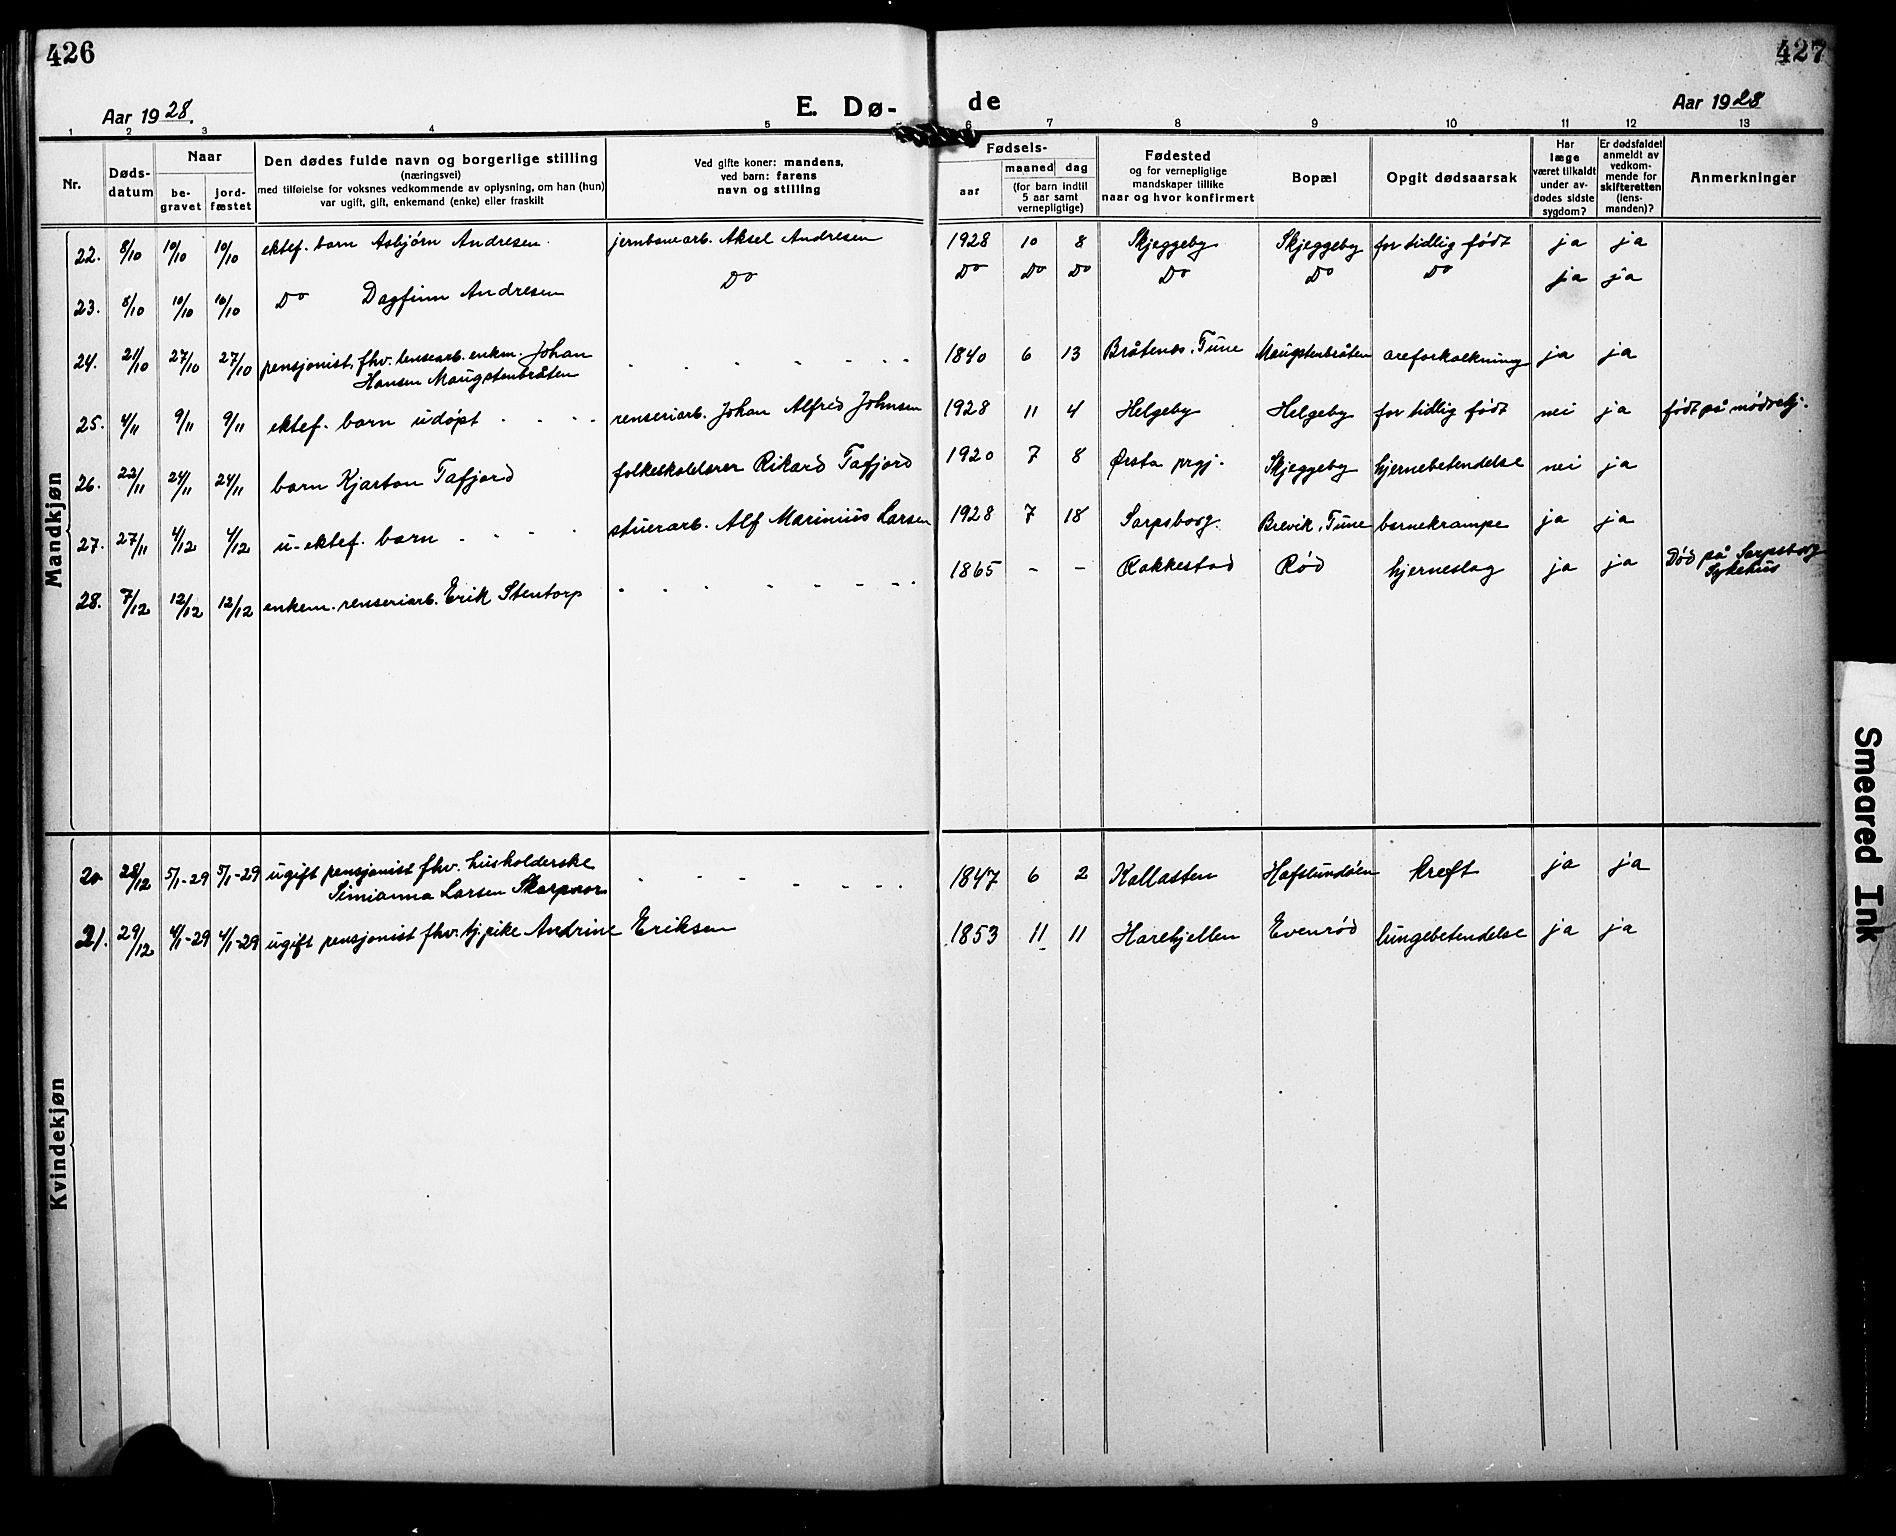 426
427
Aar 1928.
E. Dø-
de
Aar 1928
1 2 3 4 5 6 7 8 9 10 11 12 13
Nr.
Døds-
datum
Naar
be-
gravet
jord-
fæstet
Den dødes fulde navn og borgerlige stilling
(næringsvei)
med tilføielse for voksnes vedkommende av oplysning, om han (hun)
var ugift, gift, enkemand (enke) eller fraskilt
Ved gifte koner: mandens,
ved barn: farens
navn og stilling
Fødsels-
aar
maaned dag
(for barn indtil
5 aar samt
vernepligtige)
Fødested
og for vernepligtige
mandskaper tillike
naar og hvor konfirmert
Bopæl
Opgit dødsaarsak
Har
læge
været tilkaldt
under av-
dødes sidste
sygdom?
Er dødsfaldet
anmeldt av
vedkom-
mende for
skifteretten
(lens-
manden)?
Anmerkninger
Mandkjøn
22. 8/10 10/10 10/10 ektef. barn Asbjørn Andresen. jernbanearb. Aksel Andresen 1928 10 8 Skjeggeby Skjeggeby for tidlig født ja ja
23. 8/10 10/10 10/10 Do Dagfinn Andresen Do Do Do Do Do Do Do ja ja
24. 21/10 27/10 27/10 pensjonist, fhv. lensearb. enkm. Johan
Hansen Maugstenbråten - - - - - - 1840 6 13 Bråtenes, Tune Maugstenbråten areforkalkning ja ja
25. 4/11 9/11 9/11 ektef. barn udøpt - - - renseriarb. Johan Alfred Johnsen 1928 11 4 Helgeby Helgeby for tidlig født nei ja født på mødrehj.
26. 22/11 24/11 24/11 barn Kjartan Tafjord folkeskolelærer Rikard Tafjord 1920 7 8 Ørsta prgj. Skjeggeby hjernebetendelse nei ja
27. 27/11 4/12 4/12 u-ektef. barn - - - - stuerarb. Alf Marinius Larsen 1928 7 18 Sarpsborg. Brevik, Tune barnekrampe ja ja
28. 7/12 12/12 12/12 enkem. renseriarb. Erik Stentorp - - - - - - - 1865 - - Rakkestad Rød hjerneslag ja ja Død på Sarpsborg
Sykehus
Kvindekjøn
20 28/12 5/1-29 5/1-29 ugift pensjonist fhv. husholderske
Simianna Larsen Skarpnor - - - - - - - 1847 6 2 Kallasten Hafslundøen kreft ja ja
21. 29/12 4/1-29 4/1-29 ugift pensjonist fhv. tj. pike Andrine Eriksen 1853 11 11 Harehjellen Evenrød lungebetendelse ja ja
Smeared Ink